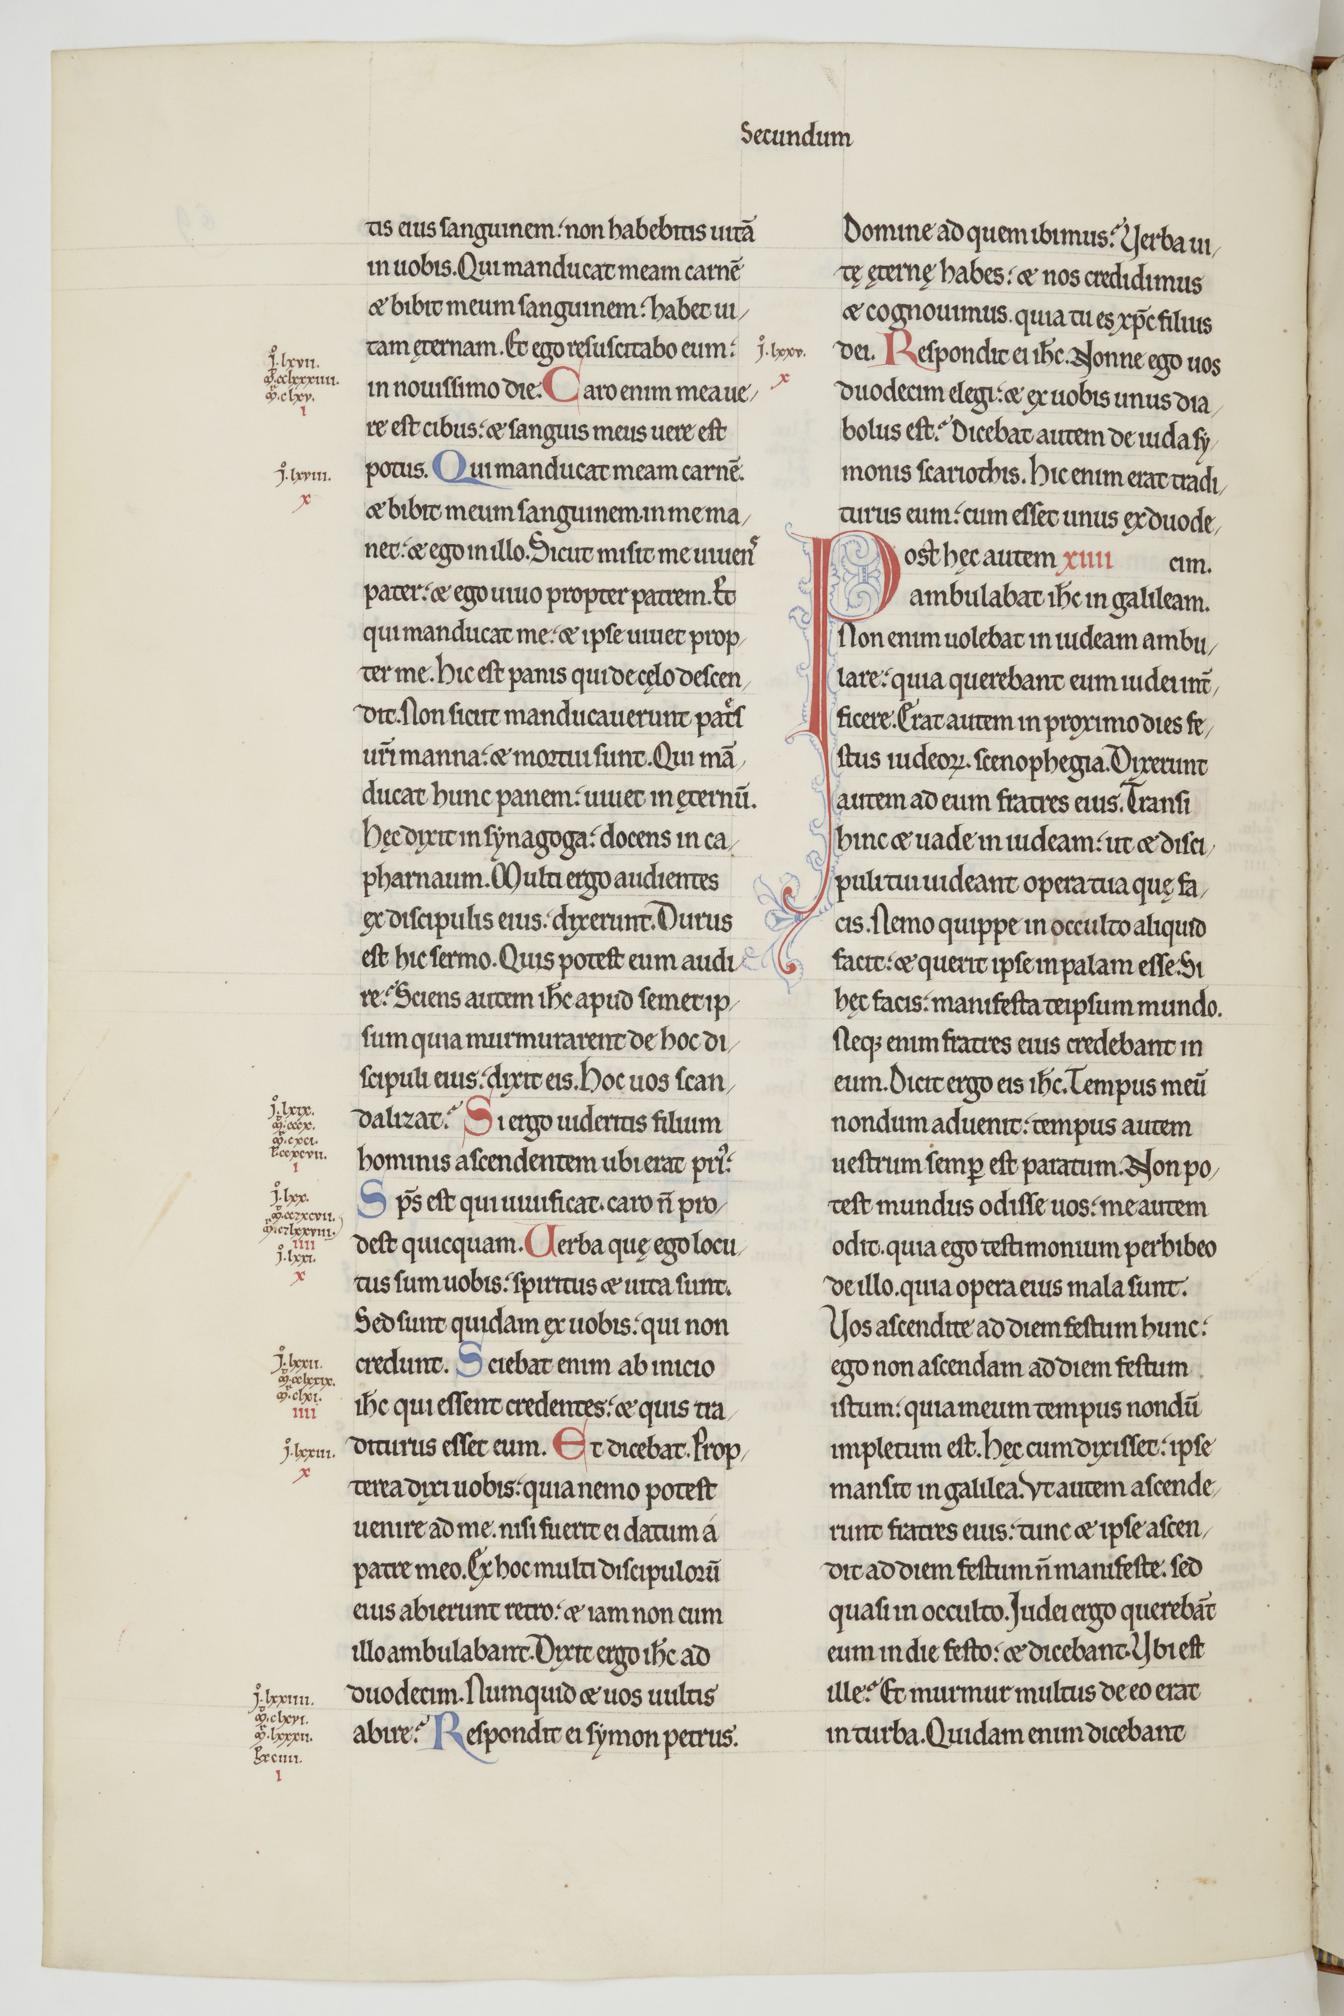 Secundum
tis eius sanguinem: non habebitis uitā
in uobis. Qui manducat meam carnē
& bibit meum sanguinem: habet ui/
tam ęternam. Et ego resuscitabo eum:
in nouissimo die. Caro enim mea ue/
re est cibus: & sanguis meus uere est
potus. Qui manducat meam carnē.
& bibit meum sanguinem. in me ma/
net: & ego in illo. Sicut misit me uiuens
pater: & ego uiuo propter patrem. Et
qui manducat me: & ipse uiuet prop/
ter me. Hic est panis qui de cęlo descen/
dit. Non sicut manducauerunt patres
ur̄i manna: & mortui sunt. Qui mā/
ducat hunc panem: uiuet in ęternū.
Hęc dixit in synagoga: docens in ca/
pharnaum. Multi ergo audientes
ex discipulis eius: dixerunt. Durus
est hic sermo. Quis potest eum audi
re? Sciens autem ih̄c apud semetip/
sum quia murmurarent de hoc di/
scipuli eius: dixit eis. Hoc uos scan/
dalizat? Si ergo uideritis filium
hominis ascendentem ubi erat pri9:
Sp̄s est qui uiuificat. caro n̄ pro/
dest quicquam. Uerba quę ego locu/
tus sum uobis: spiritus & uita sunt.
Sed sunt quidam ex uobis: qui non
credunt. Sciebat enim ab inicio
ih̄c qui essent credentes: & quis tra/
diturus esset eum. Et dicebat. Prop/
terea dixi uobis: quia nemo potest
uenire ad me. nisi fuerit ei datum á
patre meo. Ex hoc multi discipulorū
eius abierunt retro: & iam non cum
illo ambulabant. Dixit ergo ih̄c ad
duodecim. Numquid & uos uultis
abire? Respondit ei symon petrus.
j̊. lxvii.
I
j̊. lxviii.
x
j̊. lxix.
I
j̊. lxx.
IIII
j̊. lxxi.
x
j̊. lxxii.
IIII
j̊. lxxiii.
x
j̊. lxxiiii.
I
Domine ad quem ibimus? Verba ui/
tę ęternę habes: & nos credidimus
& cognouimus. quia tu es xp̄c filius
dei. Respondit ei ih̄c. Nonne ego uos
duodecim elegi: & ex uobis unus dia/
bolus est? Dicebat autem de iuda sy/
monis scariothis. Hic enim erat tradi/
turus eum: cum esset unus ex duode/
Post hęc autem xiiii cim.
ambulabat ih̄c in galileam.
Non enim uolebat in iudeam ambu/
lare: quia querebant eum iudei int̄/
ficere. Erat autem in proximo dies fe/
stus iudeoꝝ. scenophegia. Dixerunt
autem ad eum fratres eius. Transi
hinc & uade in iudeam: ut & disci/
puli tui uideant opera tua quę fa/
cis. Nemo quippe in occulto aliquid
facit: & querit ipse in palam esse. Si
hęc facis: manifesta teipsum mundo.
Neqꝫ enim fratres eius credebant in
eum. Dicit ergo eis ih̄c. Tempus meū
nondum aduenit: tempus autem
uestrum semꝑ est paratum. Non po/
test mundus odisse uos: me autem
odit. quia ego testimonium perhibeo
de illo. quia opera eius mala sunt.
Vos ascendite ad diem festum hunc:
ego non ascendam ad diem festum
istum: quia meum tempus nondū
impletum est. Hęc cum dixisset: ipse
mansit in galilea. Vt autem ascende/
runt fratres eius: tunc & ipse ascen/
dit ad diem festum n̄ manifeste. sed
quasi in occulto. Judei ergo querebāt
eum in die festo: & dicebant. Vbi est
ille? Et murmur multus de eo erat
in turba. Quidam enim dicebant
j̊. lxxv.
x